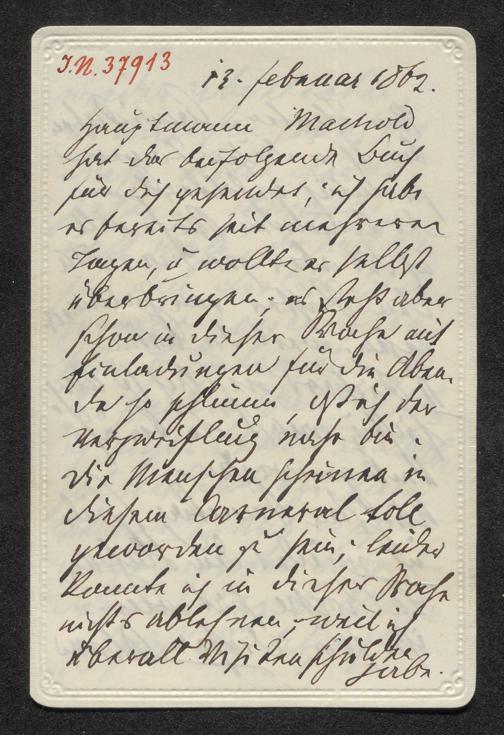 I.N. 37913
13. Februar 1862.
Hauptmann Machold
hat das beifolgende Buch
für dich gesendet, ich habe
es bereits seit mehreren
Tagen, u wollte es selbst
überbringen; es steht aber
schon in dieser Woche mit
Einladungen für die Aben-
de so schlimm, daß ich der
Verzweiflung nahe bin.
Die Menschen scheinen in
diesem Carneval toll
geworden zu sein; leider
konnte ich in dieser Woche
nichts ablehnen, weil ich
überall Visiten
habe.